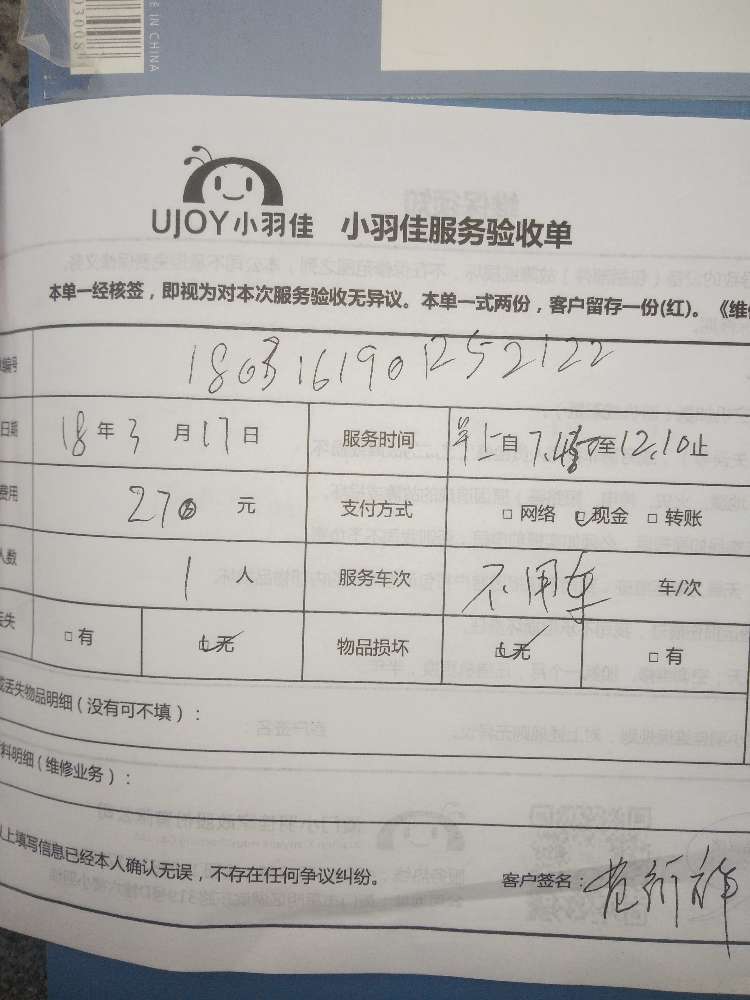 MADE IN CHINA
UJOY小羽佳 小羽佳服务验收单
本单一经核签，即视为对本次服务验收无异议。本单一式两份，客户留存一份(红)。《维
编号 1803161901252122
日期 18 年 3 月 17 日 服务时间 早上自 7.45至12.10止
费用 270 元 支付方式 □ 网络 □现金 □ 转账
人数 1 人 服务车次 不用车 车/次
丢失 □ 有 □无 物品损坏 □无 □ 有
或丢失物品明细（没有可不填）：
料明细（维修业务）：
以上填写信息已经本人确认无误，不存在任何争议纠纷。 客户签名：